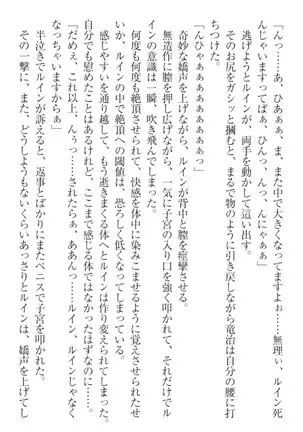 「んっ……あ、ひああっ、ま、また中で大きくなってますよぉ……無理ぃ、ルイン死
んじゃいますってばぁっ、ひんっ、んっ、んにゃぁぁっ」
逃げようとルインが、両手を動かして這い出す。
そのお尻をガシッと掴むと、まるで物のように引き戻しながら竜治は自分の腰に打
ちつけた。
「んひゃぁぁぁぁぁぁぁっ」
奇妙な嬌声を上げながら、ルインが背中と膣を痙攣させる。
無造作に膣を押し広げながら、一気に子宮の入り口を強く叩かれて、ルイ
ンの意識は一瞬、吹き飛んでしまった。
何度も何度も絶頂させられて、快感を体中に染みこませるように覚えさせられて
も、ルインの中で絶頂への閾値は、恐ろしく低くなってしまっていた。
感じやすいを通り越して、もう逝きまくる体へとルインは作り変えられてしまった。
自分でも慰めたことはあるけれど、ここまで感じる体ではなかったはずなのに……。
「だめぇ、これ以上、んぅっ……されたらぁ、ああんっ……ルイン、ルインじゃなく
なっちゃいますからぁ」
半泣きでルインが訴えると、返事とばかりにまたペニスで子宮を叩かれた。
その一撃に、また、どうしようもないくらいあっさりとルインは、嬌声を上げてし